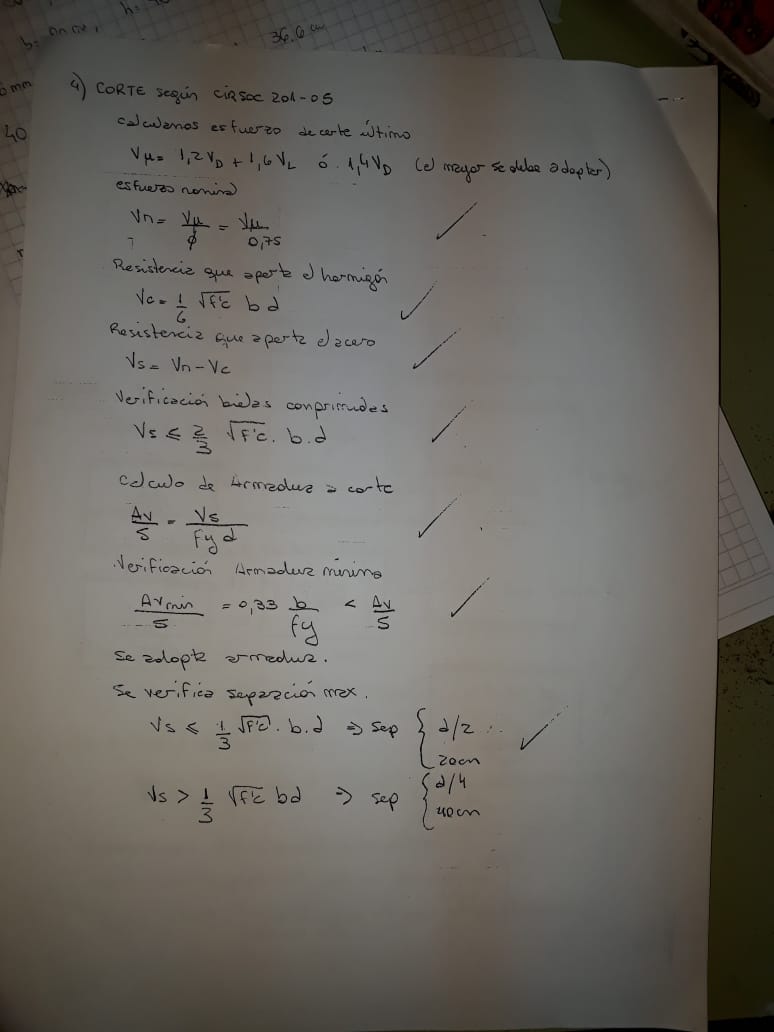 h=
b= 
36.6 cm
0 mm
40
4) CORTE según CIRSOC 201-05
calculamos esfuerzo de corte último
Vμ= 1,2 VD + 1,6 VL ó 1,4 VD (el mayor se debe adoptar)
esfuerzo nominal
Vn= Vμ/φ = Vμ/0,75
Resistencia que aporta el hormigón
Vc= 1/6 √f'c b d
Resistencia que aporta el acero
Vs= Vn-Vc
Verificación bielas comprimidas
Vs ≤ 2/3 √f'c . b.d
calculo de Armadura a corte
Av/S = Vs/(fy d)
Verificación Armadura mínima
Avmin/S = 0,33 b/fy < Av/S
Se adopta armadura.
Se verifica separación max.
Vs ≤ 1/3 √f'c . b.d => sep { d/2
20cm
Vs > 1/3 √f'c bd => sep { d/4
40cm